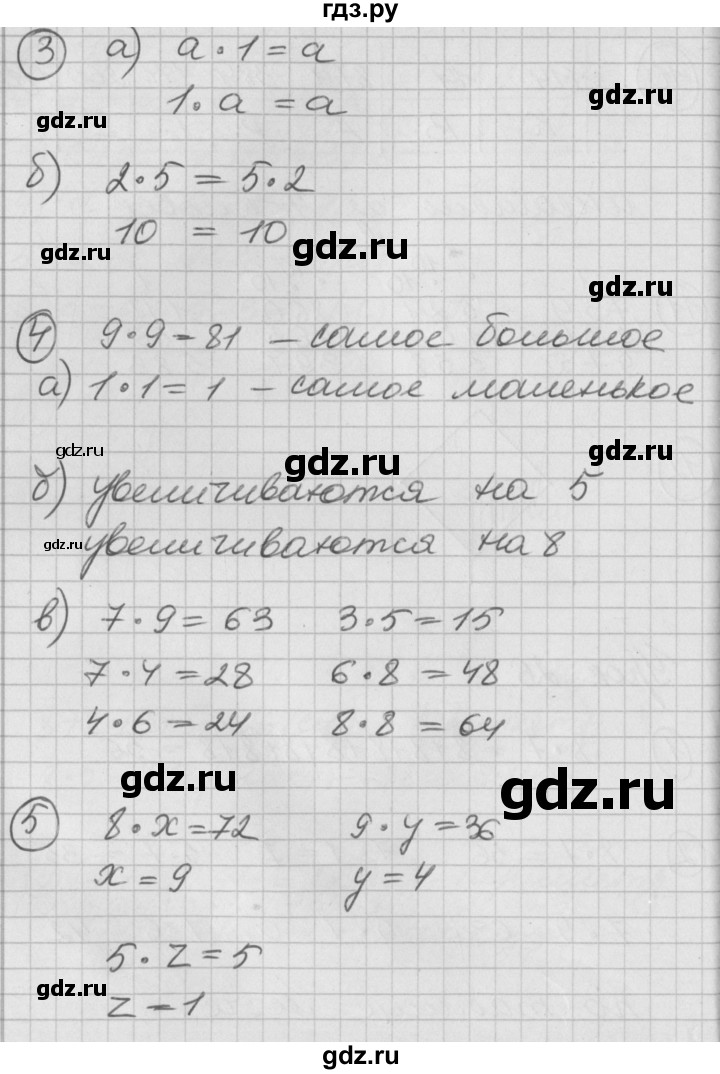 гдз.ру
3 а) a · 1 = a
gdz.ru
1 · a = a
gdz.ru
б) 2 · 5 = 5 · 2
10 = 10
gdz.ru
gdz.ru
gdz.ru
4 9 · 9 = 81 – самое большое
а) 1 · 1 = 1 – самое маленькое
gdz.ru
gdz.ru
gdz.ru
б) увеличиваются на 5
gdz.ru
увеличиваются на 8
в) 7 · 9 = 63 3 · 5 = 15
7 · 4 = 28 6 · 8 = 48
4 · 6 = 24 8 · 8 = 64
gdz.ru
gdz.ru
5 8 · x = 72 9 · y = 36
x = 9 y = 4
5 · z = 5
gdz.ru
gdz.ru
z = 1
gdz.ru